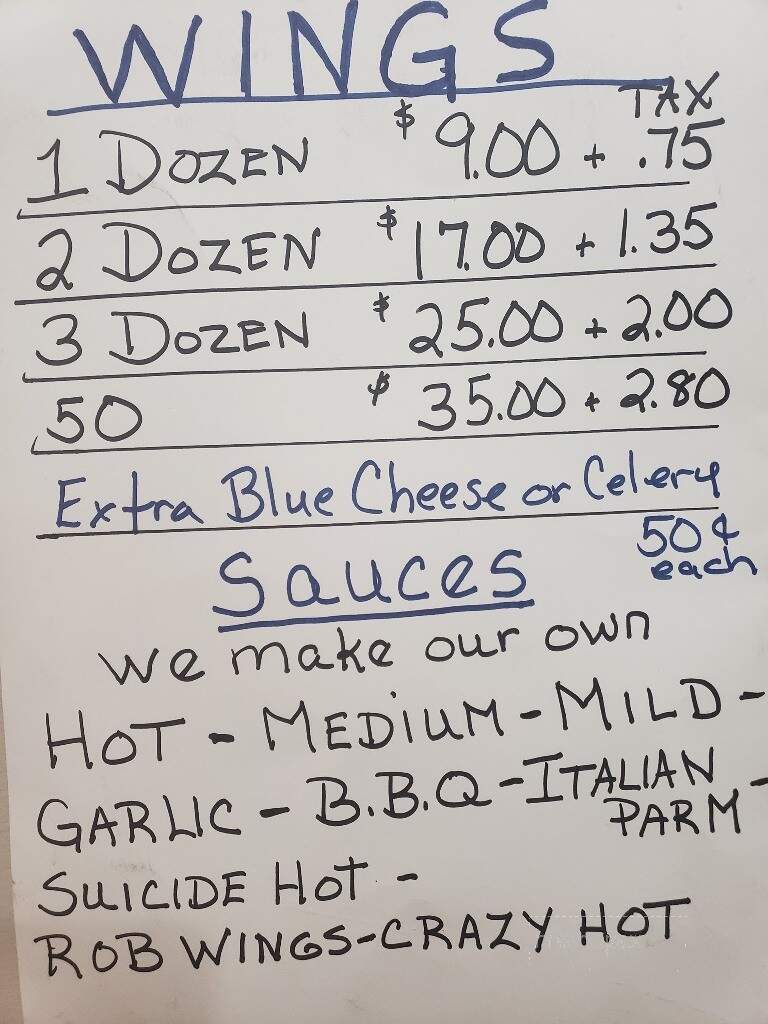 WINGS
TAX
1 DOZEN $ 9.00 + .75
2 DOZEN $ 17.00 + 1.35
3 DOZEN $ 25.00 + 2.00
50 $ 35.00 + 2.80
Extra Blue Cheese or Celery
50¢
each
Sauces
we make our own
HOT - MEDIUM - MILD -
GARLIC - B.B.Q - ITALIAN
PARM -
SUICIDE HOT -
ROB WINGS-CRAZY HOT